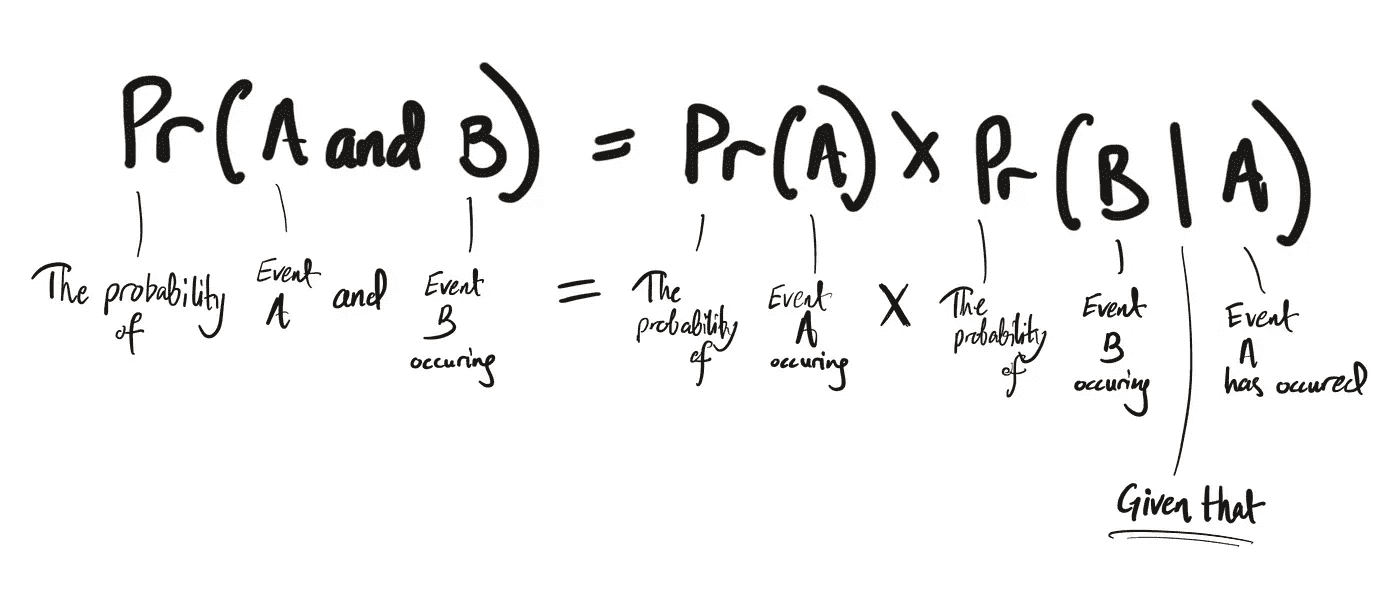 Pr(A and B) = Pr(A) × Pr(B | A)
The probability of Event A and Event B occuring = The probability of Event A occuring × The probability of Event B occuring Event A has occured
Given that